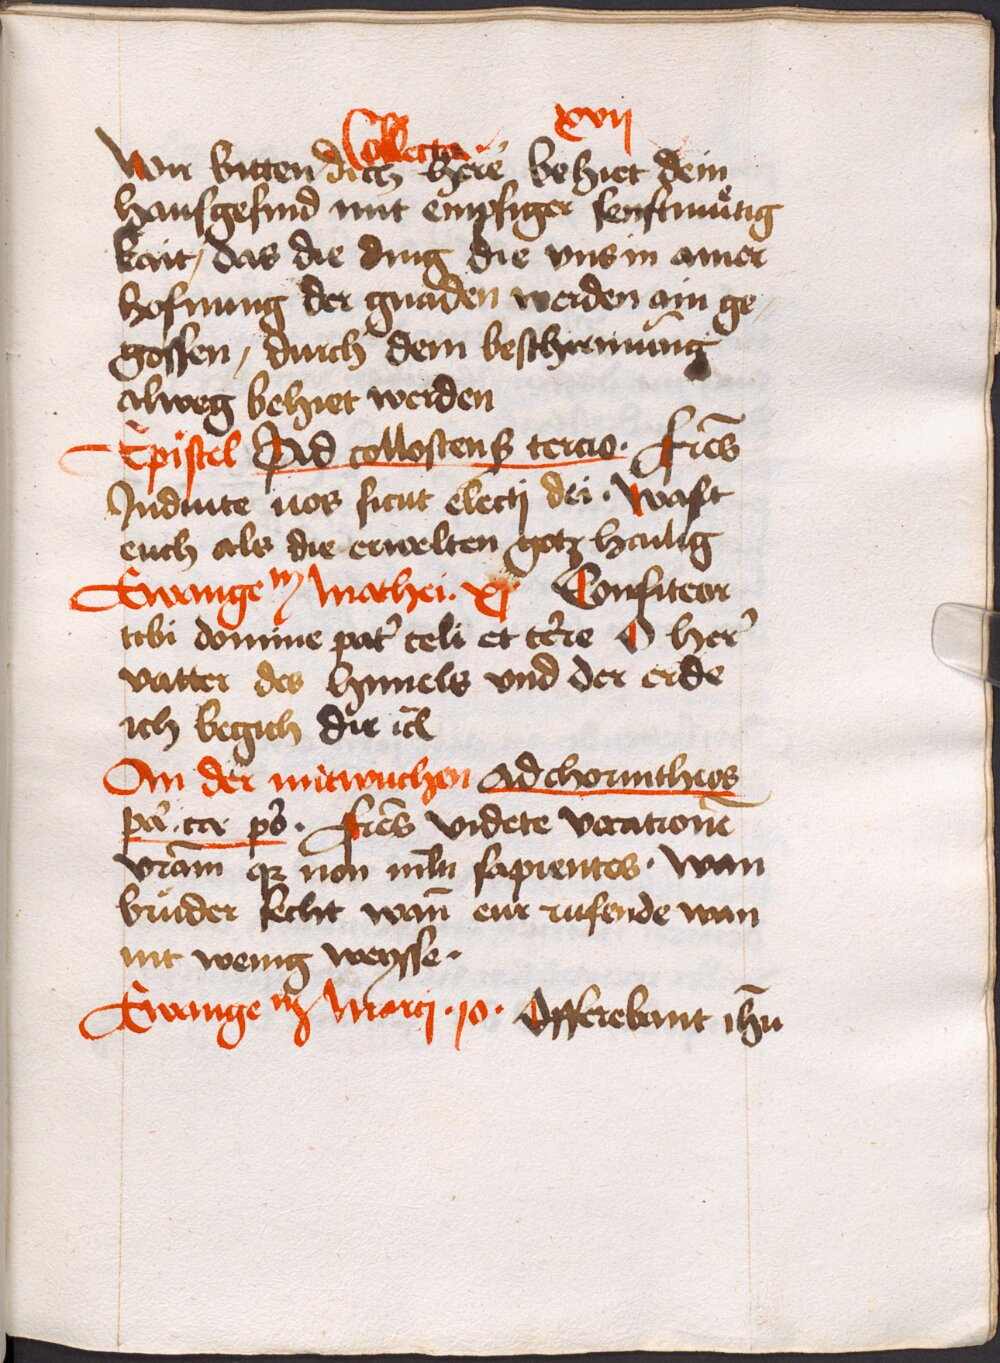 Collecta. xvii
Wir bitten dich here behiet dein
hausgesind mit empsiger senftmuͤtig
kait / das die ding die uns in ainer
hofnung der gnaden werden ain ge
gossen / durch dein beschirmūng
alweg behiet werden
Epistel Ad collostenß tercio. frēs
Induite uos sicut electi dei. Waft
euch als die erwelten gotz hailig
Ewange m̄ Mathei. xj Confiteor
tibi domine pat᷑ celi et ter̄re O her᷑
vatter des himels vnd der erde
ich begich dir ic̄l
An der mitwuchen ad chorintheos
po᷑. ca᷑ po᷑. frēs videte vocationē
vrām qz non ml̄ti sapientes. Wan
bruͤder secht wan̄ eur rufende wan
nit wenig weysse.
Ewange m̄ Marci. 10. Offerebant ih̄u